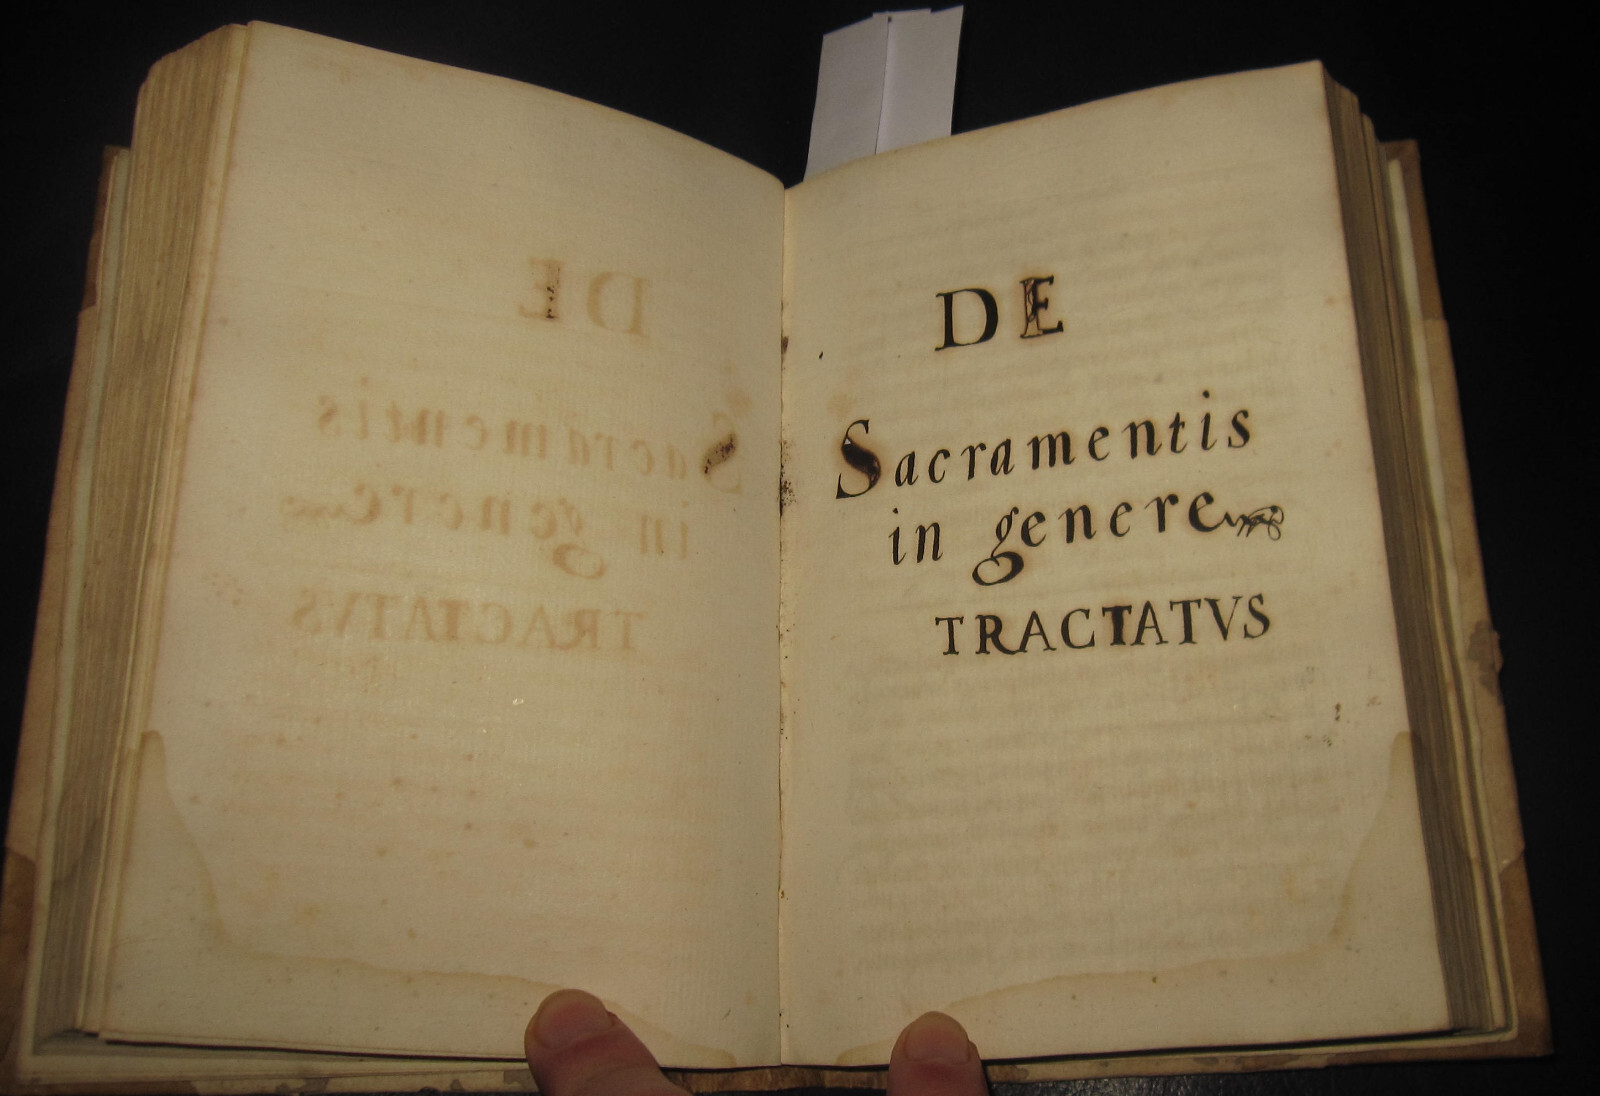 DE
Sacramentis
in genere
TRACTATVS